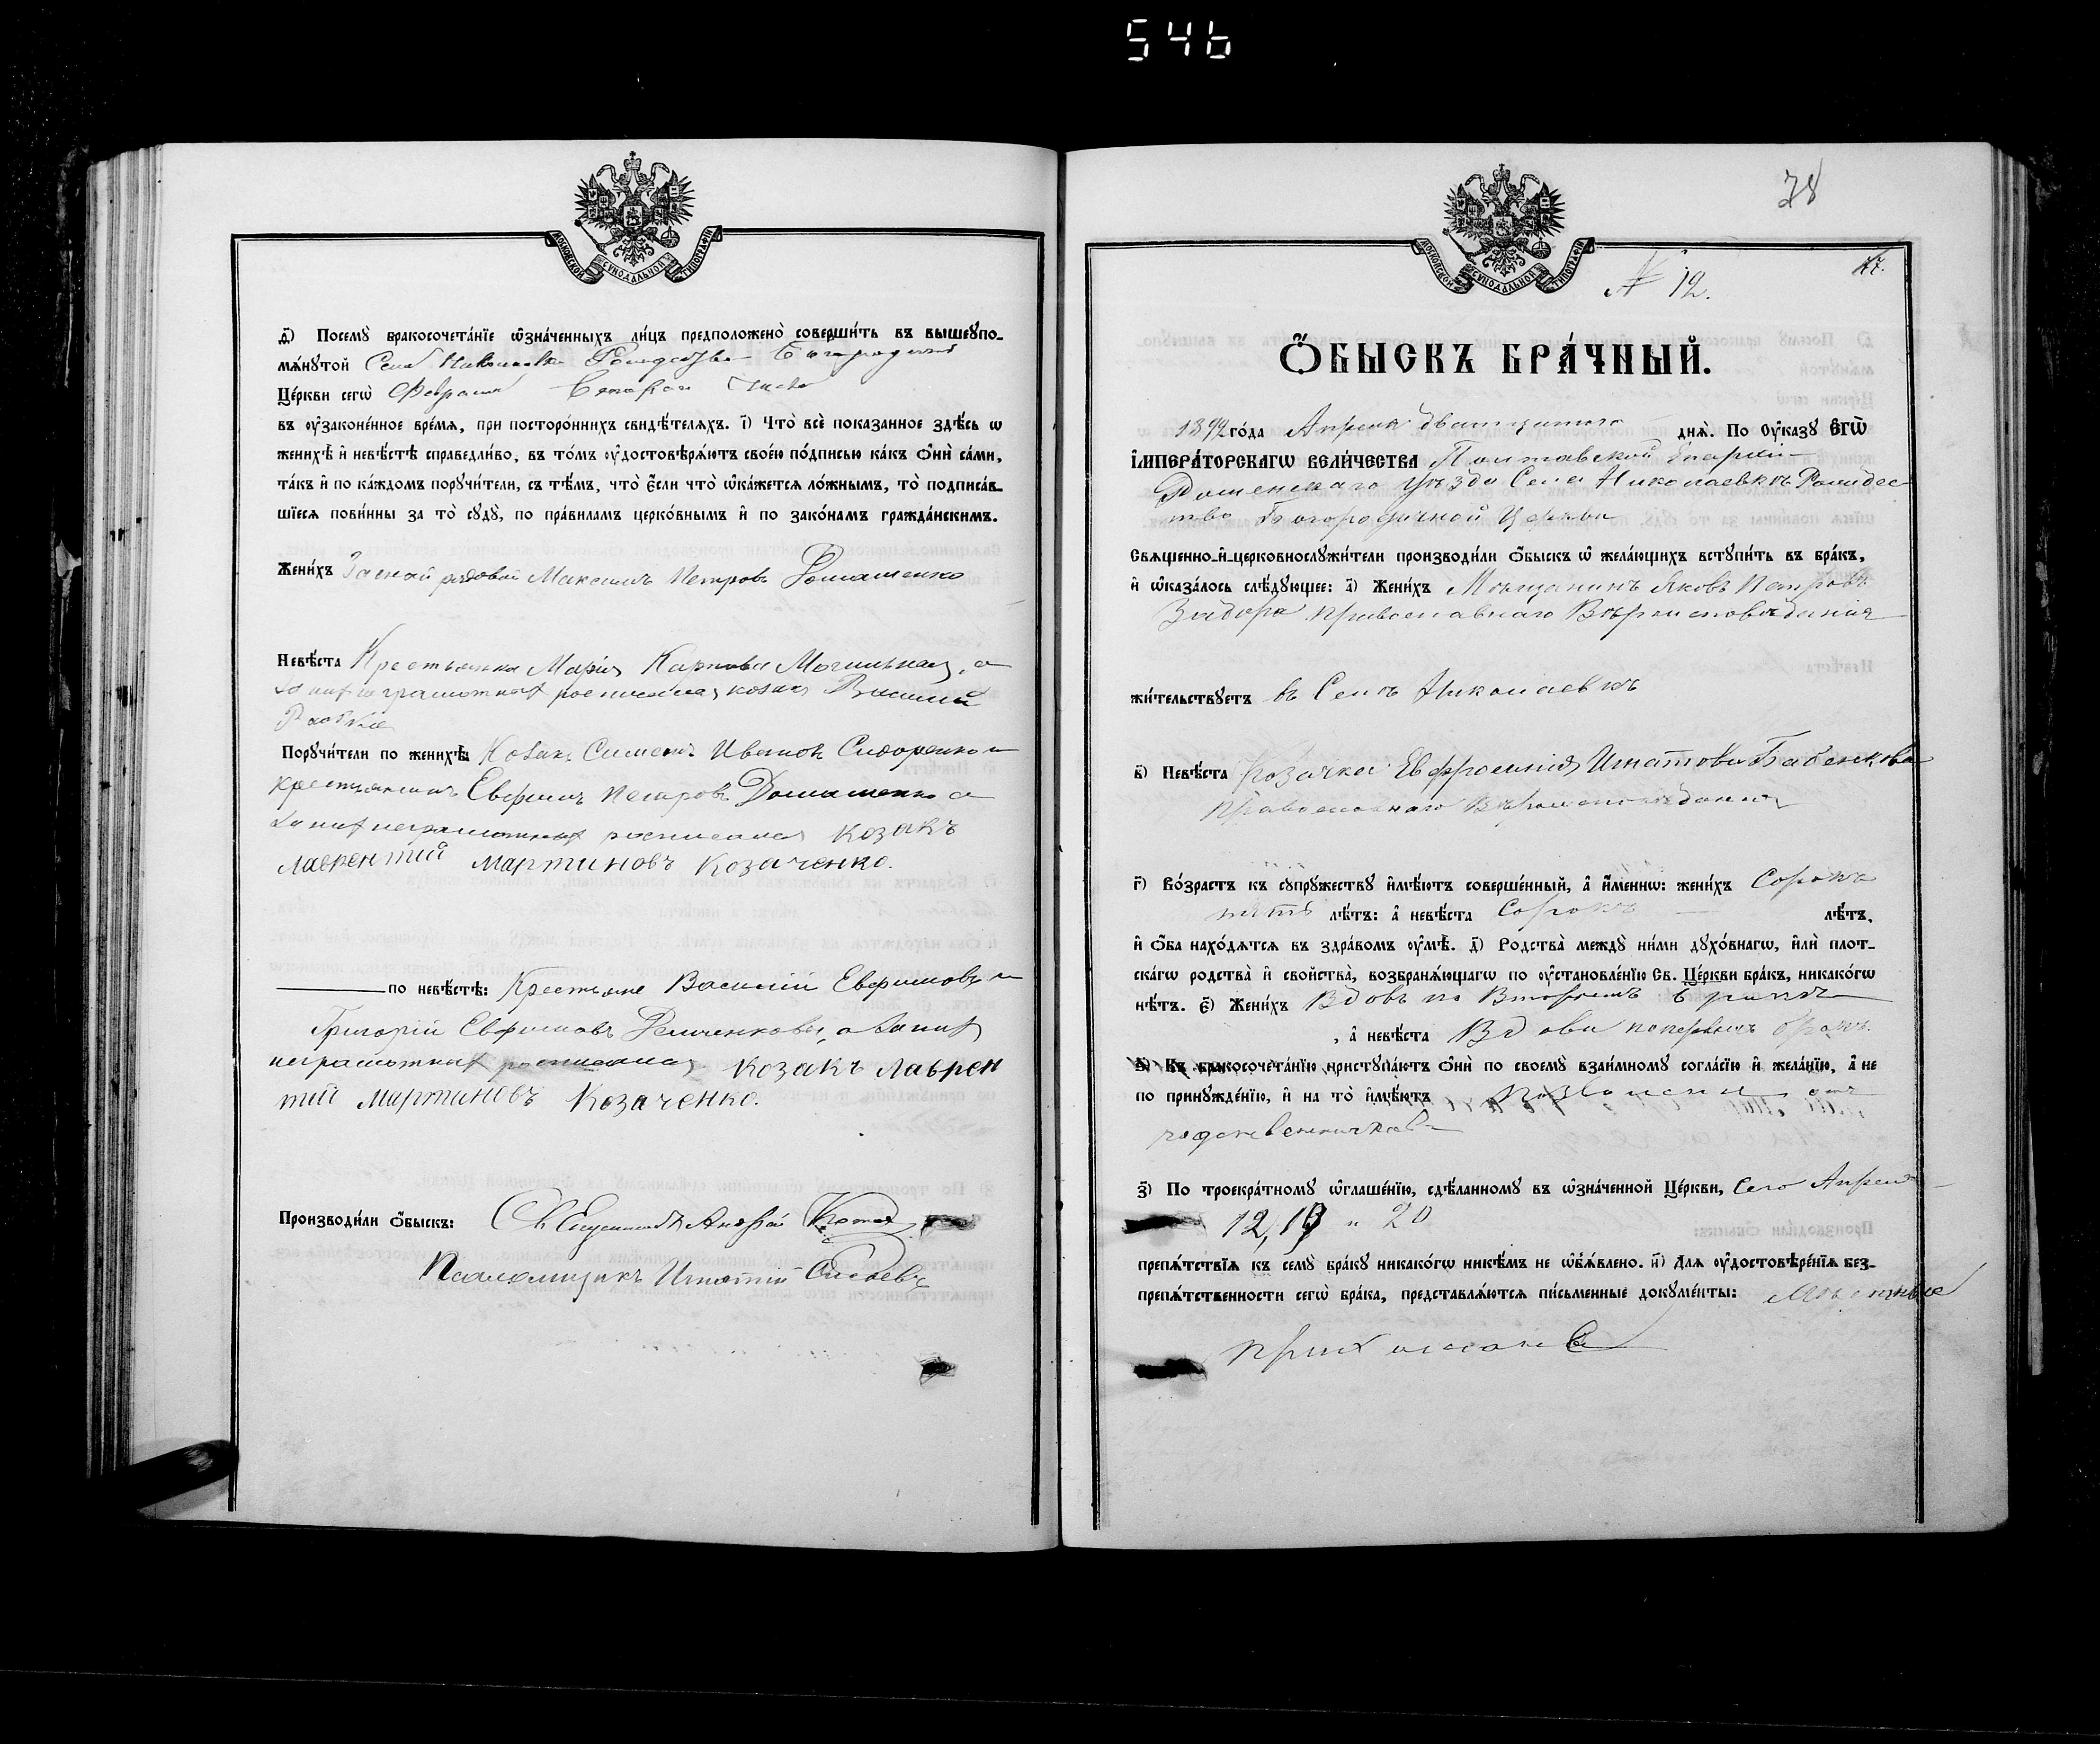 546
МОСКОВСКОЙ СУНОДАЛЬНОЙ ТИПОГРАФІИ
д҃) Посемꙋ̀ бракосочета́нїе ѡ҆зна́ченныхъ ли́цъ предположено̀ соверши́ть въ вышеꙋпо-
мѧ́нꙋтой Села Николаевки Рождество Богородичной
Це́ркви сегѡ̀ Февраля Втораго числа
въ ᲂу҆законе́нное вре́мѧ, при посторо́ннихъ свидѣ́телѧхъ. і҃) Что̀ всѐ показанное здѣ́сь ѡ
женихѣ̀ и҆ невѣ́стѣ справедли́во, въ то́мъ ᲂу҆достовѣрѧ́ютъ своє́ю по́дписью ка́къ ѻ҆нѝ са́ми,
та́къ и҆ по ка́ждомъ порꙋчи́тели, съ тѣ́мъ, что̀ є҆́сли что̀ ѡ҆ка́жетсѧ ло́жнымъ, то̀ подписа́в-
шїесѧ пови́нны за то̀ сꙋдꙋ̀, по пра́виламъ церко́внымъ и҆ по зако́намъ гражда́нскимъ.
Жени́хъ рядовой Максимъ Петровъ Домашенко
Невѣ́ста Крестьянка Марія Карпова Могильная, а
неграмотную росписался козакъ Василій
Порꙋчи́тели по женихѣ̀: Козакъ Сименъ Ивановъ Сидоренко и
крестьянинъ Евфимъ Петровъ Домашенко а
за них неграмотных росписался Козакъ
Лаврентій Мартиновъ Козаченко.
по невѣ́стѣ: Крестьяне Василій Евфимовъ и
Григорій Евфимовъ а за них
неграмотных росписался Козакъ Лаврен
тій Мартиновъ Козаченко.
Производи́ли ѻ҆́быскъ: Андрей
Псаломщикъ Игнатій
78
МОСКОВСКОЙ СУНОДАЛЬНОЙ ТИПОГРАФІИ
№ 12.
ѺБЫСКЪ БРА́ЧНЫЙ.
1892 го́да Апреля дватцатого днѧ̀. По Оу҆казꙋ Є҆гѡ̀
І҆мпера́торскагѡ вели́чества Полтавской Епархіи
Роменскаго Уѣзда Села Николаевкъ Рождес
тво Богородичной Церкви
Свѧщенно-и҆-церковнослꙋжи́тели производи́ли ѻ҆́быскъ ѡ҆ жела́ющихъ встꙋпи́ть въ бра́къ,
и҆ ѡ҆каза́лось слѣ́дꙋющее: а҃) Жени́хъ Мѣщанинъ Яковъ Петровъ
Задора православнаго Вѣроисповѣданія
жи́тельствꙋетъ въ Селѣ Николаевкѣ
в҃) Невѣ́ста Козачка Евфросинія Игнатова Бабенкова
православнаго Вѣроисповѣданія
г҃) Во́зрастъ къ сꙋпрꙋ́жествꙋ и҆мѣ́ютъ соверше́нный, а҆ и҆́меннѡ: жени́хъ Сорокъ
пять лѣ́тъ: а҆ невѣ́ста Сорокъ лѣ́тъ,
и҆ ѻ҆́ба нахо́дѧтсѧ въ здра́вомъ ᲂу҆мѣ̀. д҃) Родства̀ междꙋ̀ ни́ми дꙋхо́внагѡ, и҆лѝ плот-
ска́гѡ родства̀ и҆ свойства̀, возбранѧ́ющагѡ по ᲂу҆становле́нїю Св. Це́ркви бра́къ, никако́гѡ
нѣ́тъ. є҃) Жени́хъ Вдовъ по Второмъ бракѣ
, а҆ невѣ́ста Вдова по первымъ бракѣ.
ѕ҃) Къ бракосочета́нїю пристꙋпа́ютъ ѻ҆нѝ по своемꙋ̀ взаи́мномꙋ согла́сїю и҆ жела́нїю, а҆ не
по принꙋжде́нїю, и҆ на то̀ и҆мѣ́ютъ позволеніе отъ
родственниковъ
з҃) По троекра́тномꙋ ѡ҆глаше́нїю, сдѣ́ланномꙋ въ ѡ҆зна́ченной Це́ркви, Сего Апреля
12, 19 и 20
препѧ́тствїѧ къ семꙋ̀ бра́кꙋ никако́гѡ никѣ́мъ не ѡ҆б̾ѧ́влено. и҃) Длѧ ᲂу҆достовѣре́нїѧ без-
препѧ́тственности сегѡ̀ бра́ка, представлѧ́ютсѧ пи́сьменные докꙋме́нты: Мѣстные
прихожане